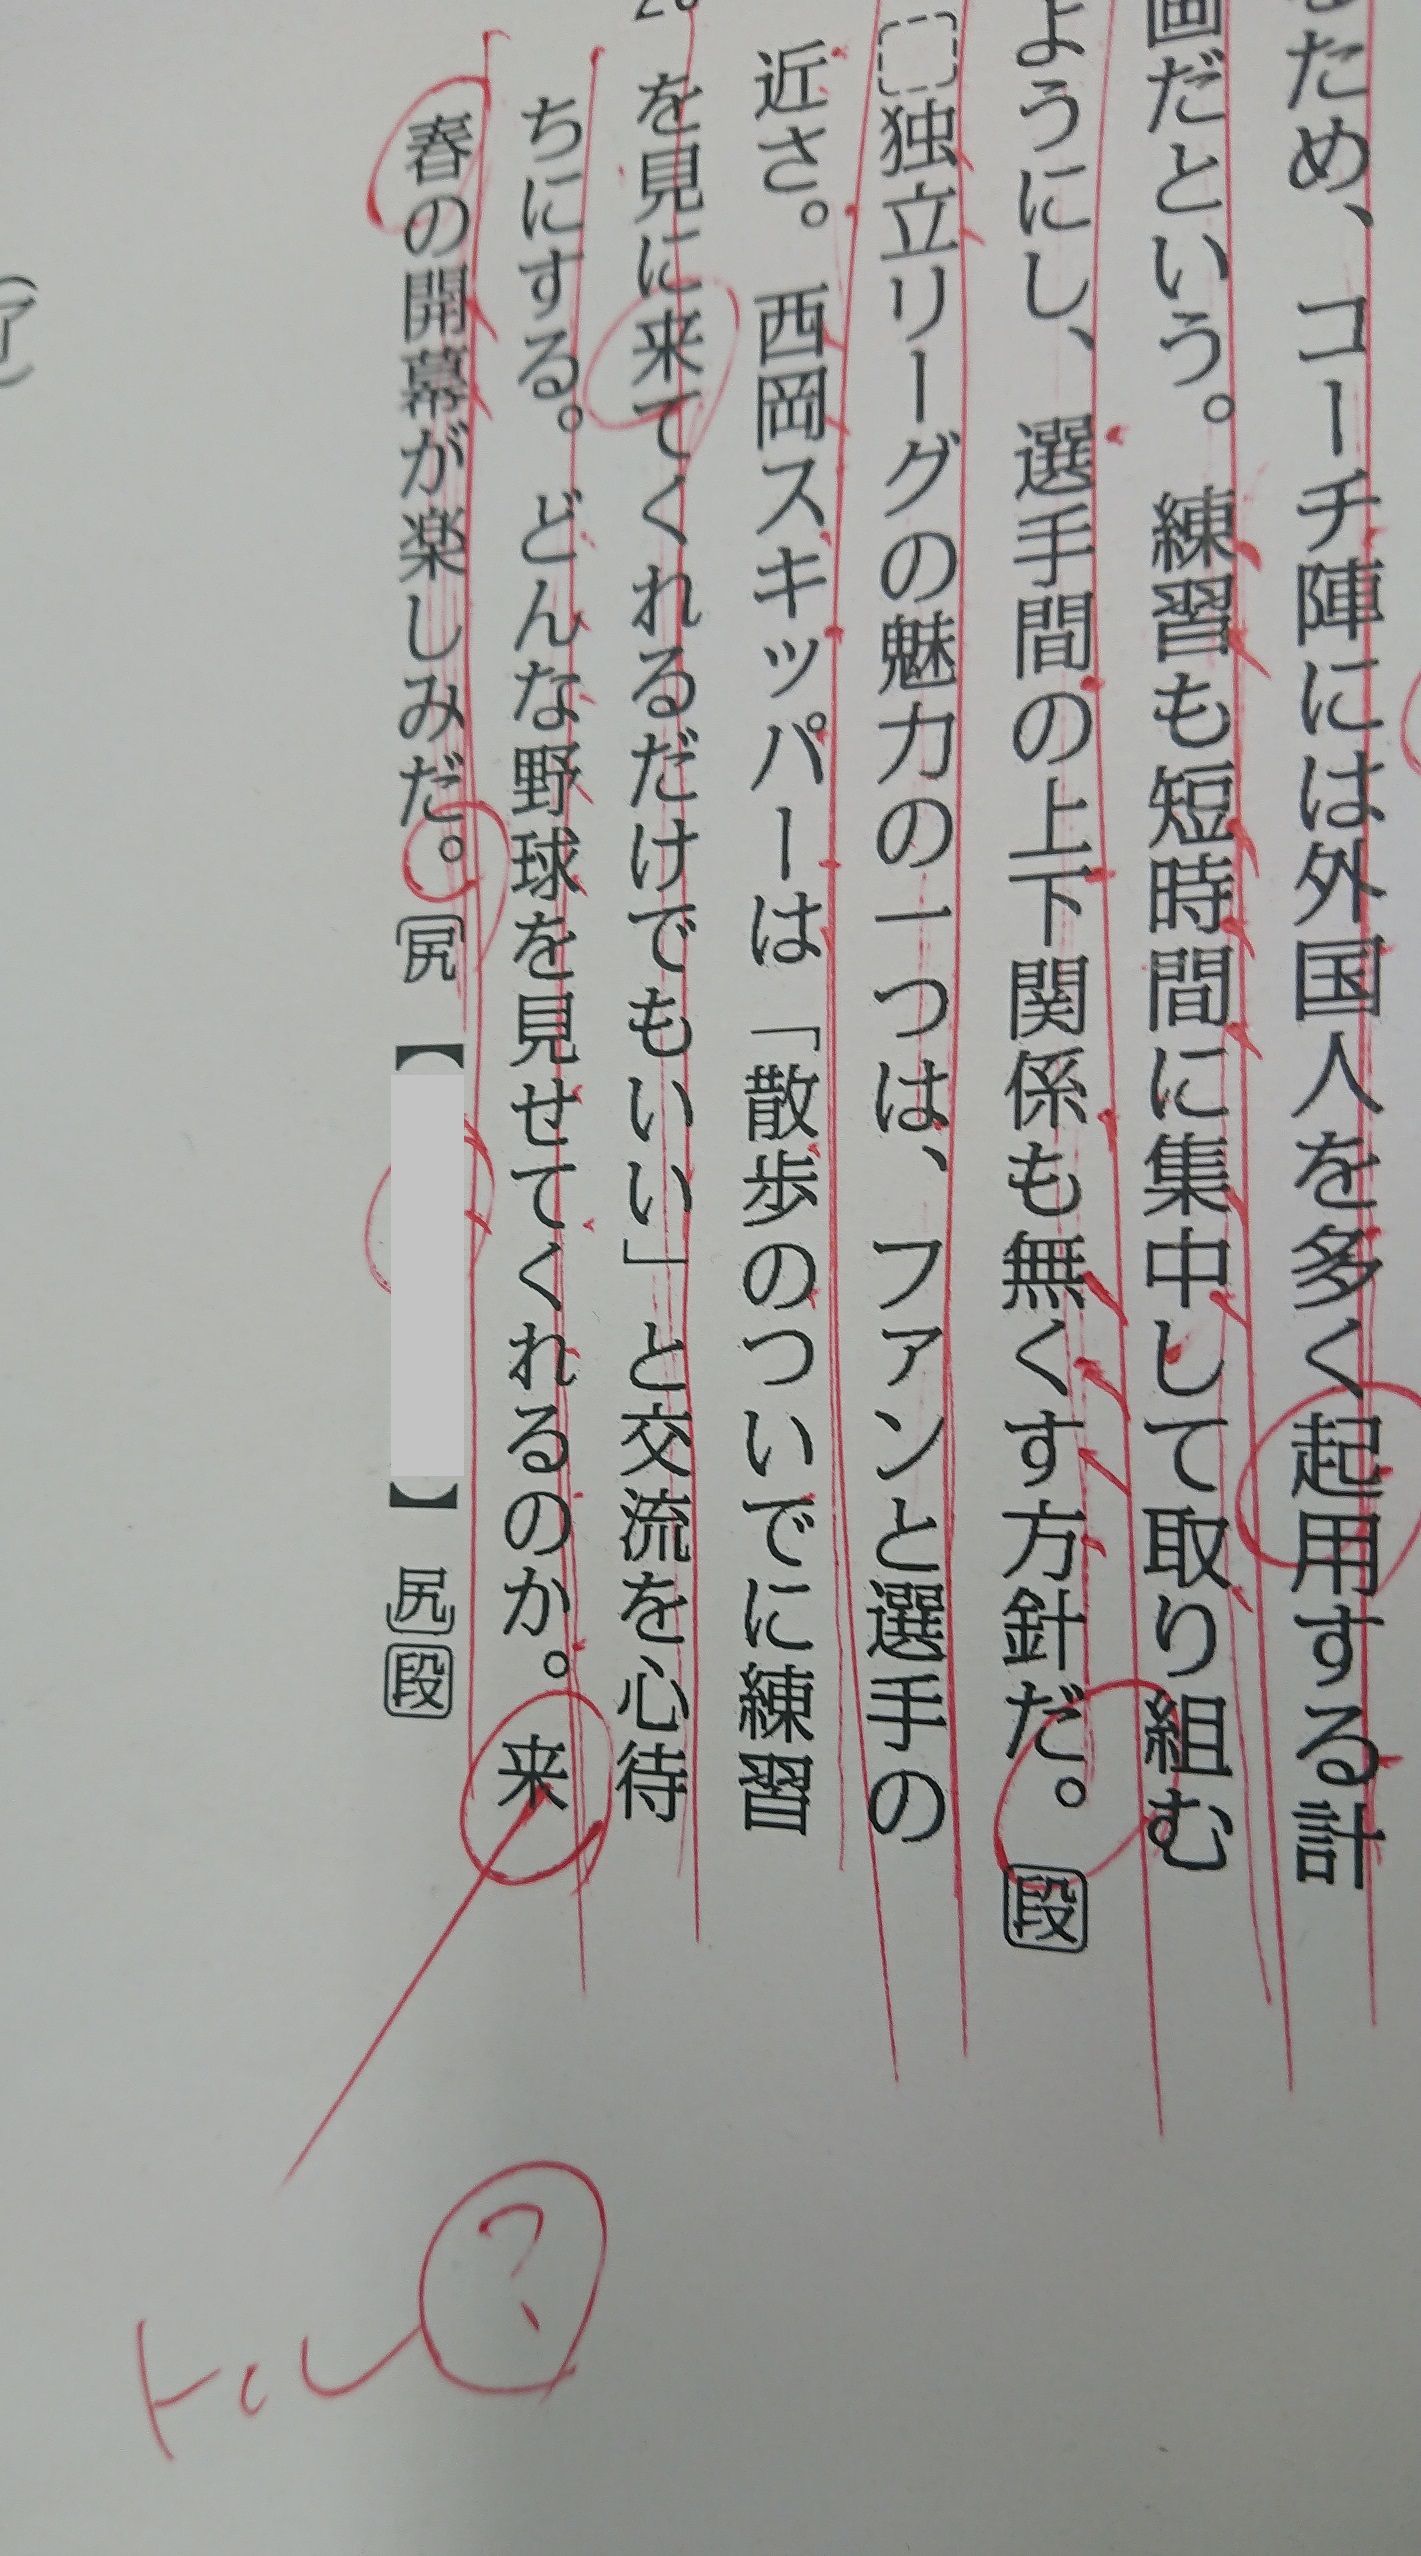 ため、コーチ陣には外国人を多く起用する計
画だという。練習も短時間に集中して取り組む
ようにし、選手間の上下関係も無くす方針だ。段
独立リーグの魅力の一つは、ファンと選手の
近さ。西岡スキッパーは「散歩のついでに練習
を見に来てくれるだけでもいい」と交流を心待
ちにする。どんな野球を見せてくれるのか。来
春の開幕が楽しみだ。尻【 】尻段
トル?